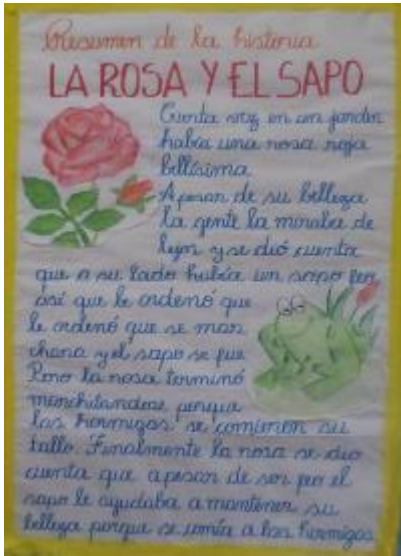 Resumen de la historia
LA ROSA Y EL SAPO
Cierta vez en un jardín
había una rosa roja
bellísima
A pesar de su belleza
la gente la miraba de
lejos y se dió cuenta
que a su lado había un sapo feo
así que le ordenó que
le ordenó que se mar
chara y el sapo se fue
Pero la rosa terminó
marchitandose porque
las hormigas se comieron su
tallo. Finalmente la rosa se dio
cuenta que a pesar de ser feo el
sapo le ayudaba a mantener su
belleza porque se comía a las hormigas